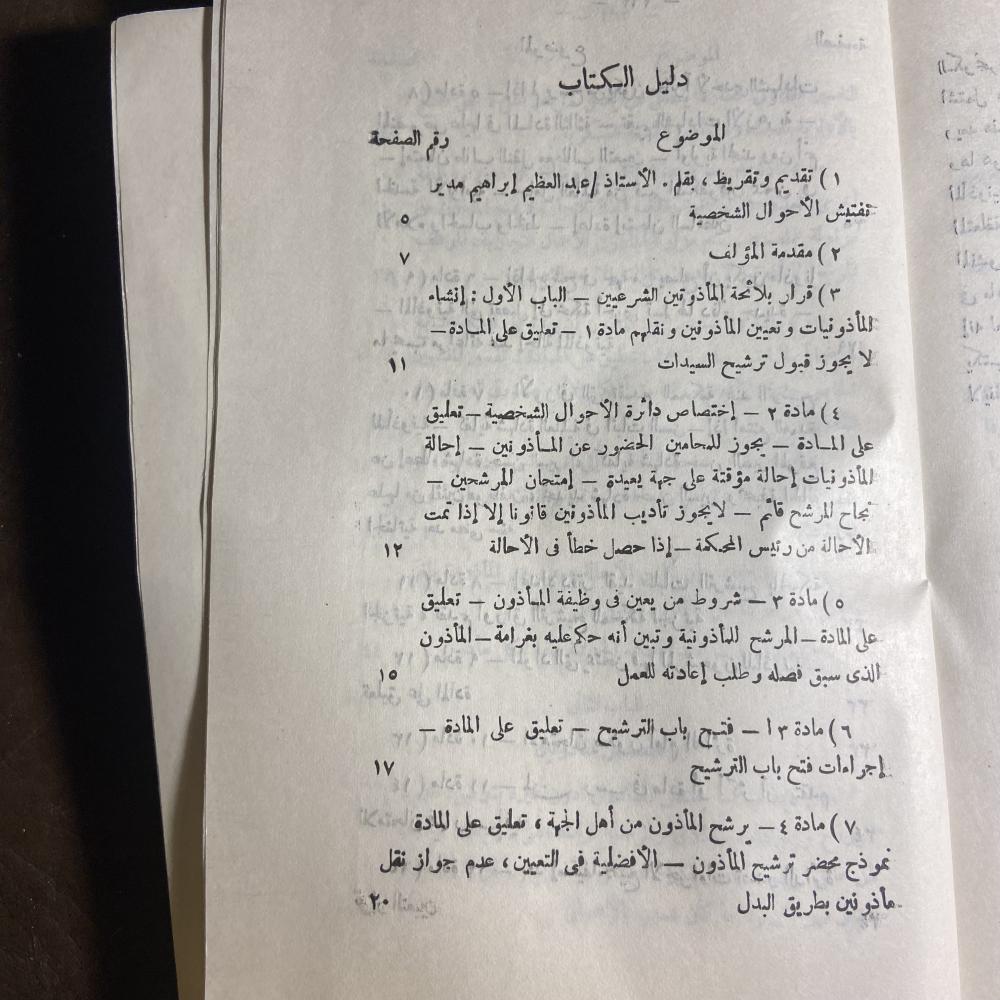 دليل الكتاب
الموضوع رقم الصفحة
١) تقديم وتقريظ ، بقلم . الأستاذ /عبد العظيم إبراهيم مدير
تفتيش الأحوال الشخصية ٥
٢) مقدمة المؤلف ٧
٣) قرار بلائحة المأذوتين الشرعيين – الباب الأول : إنشاء
المأذونيات وتعيين المأذونين ونقلهم مادة ١ – تعليق على المادة –
لا يجوز قبول ترشيح السيدات ١١
٤) مادة ٢ – إختصاص دائرة الأحوال الشخصية – تعليق
على المادة – يجوز للمحامين الحضور عن المأذونين – إحالة
المأذونيات إحالة مؤقتة على جهة بعيدة – إمتحان المرشحين –
نجاح المرشح قائم – لايجوز تأديب المأذونين قانونا إلا إذا تمت
الأحالة من رئيس المحكمة – إذا حصل خطأ فى الأحالة ١٢
٥) مادة ٣ – شروط من يعين فى وظيفة المأذون – تعليق
على المادة – المرشح للمأذونية وتبين أنه حكم عليه بغرامة – المأذون
الذى سبق فصله وطلب إعادته للعمل ١٥
٦) مادة ٣ ا – فتح باب الترشيح – تعليق على المادة –
إجراءات فتح باب الترشيح ١٧
٧) مادة ٤ – يرشح المأذون من أهل الجهة ، تعليق على المادة
نموذج محضر ترشيح المأذون – الأفضلية فى التعيين ، عدم جواز نقل
مأذونين بطريق البدل ٢٠